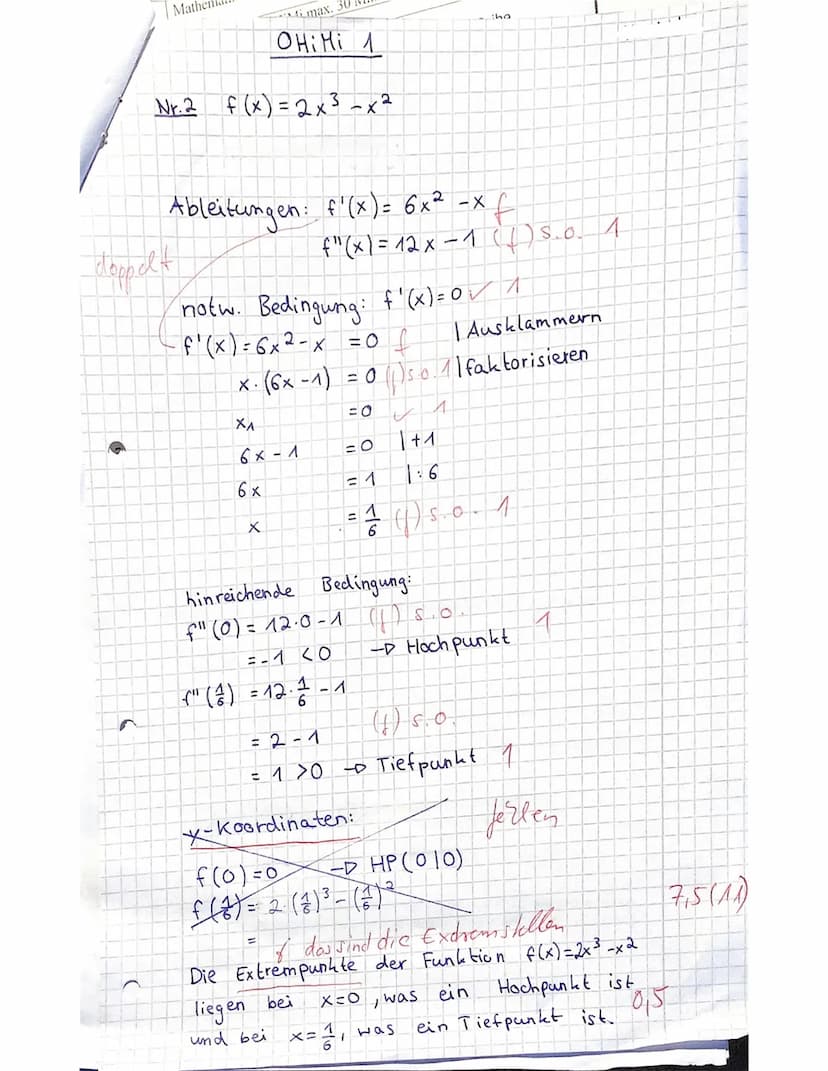 max. 30
OHiMi 1
Nr.2 f(x) = 2x³ - x²
Ableitungen: f'(x) = 6x² - x f
f''(x) = 12x - 1 (f) s.o. 1
doppelt
notw. Bedingung: f'(x) = 0 ✓ 1
f'(x) = 6x² - x = 0 f | Ausklammern
x · (6x - 1) = 0 (f) s.o. 1 | faktorisieren
x₁ = 0 ✓ 1
6x - 1 = 0 | +1
6x = 1 | : 6
x = 1/6 (f) s.o. 1
hinreichende Bedingung:
f''(0) = 12·0 - 1 (f) s.o.
= -1 < 0 → Hochpunkt 1
f''(1/6) = 12 · 1/6 - 1
= 2 - 1 (f) s.o.
= 1 > 0 → Tiefpunkt 1
y-Koordinaten: fehlen
f(0) = 0 → HP(0|0)
f(1/6) = 2·(1/6)³ - (1/6)²
7,5 (11)
=
f das sind die Extremstellen
Die Extrempunkte der Funktion f(x) = 2x³ - x²
liegen bei x=0, was ein Hochpunkt ist
und bei x = 1/6, was ein Tiefpunkt ist. 0,5